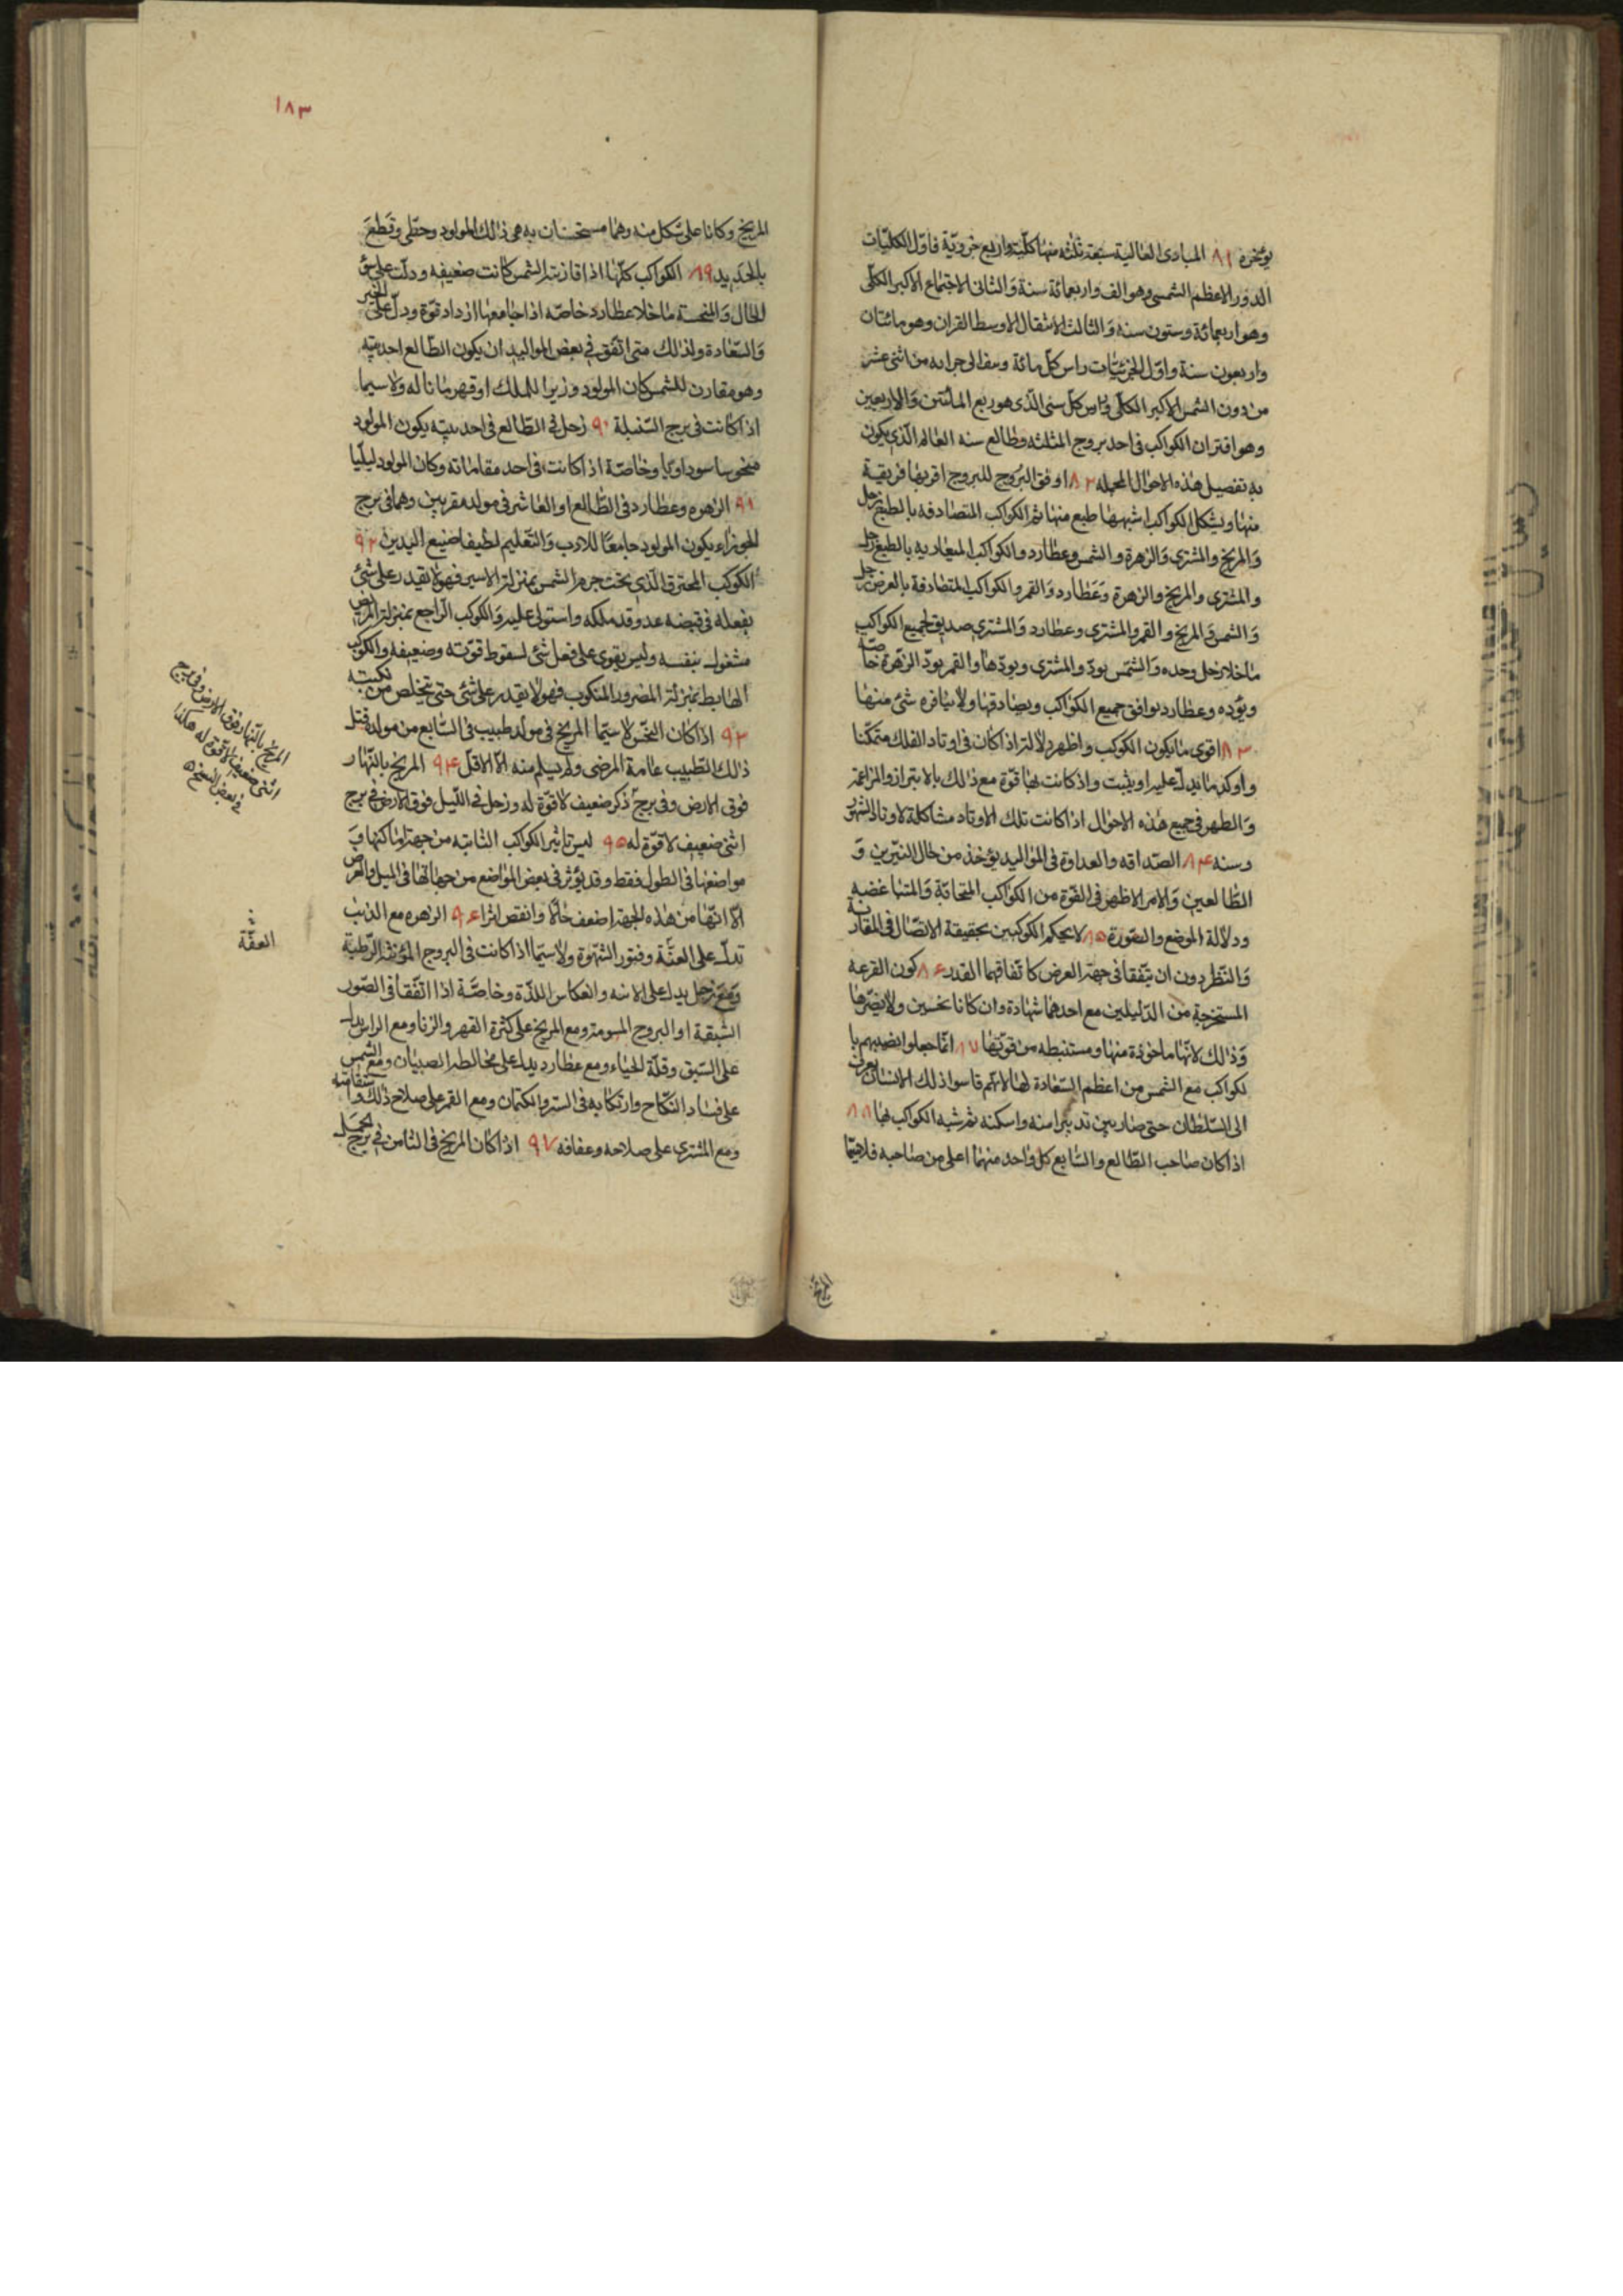 يؤخره ٨١ المبادى العالية سبعة ثلثه منها كلية واربع جزوية فاول الكليات
الدور الاعظم الشمسى وهو الف واربعمائة سنة والثانى الاجتماع الاكبر الكلى
وهو اربعمائة وستون سنه والثالث الانتقال الاوسط القران وهو مائتان
واربعون سنة واول الجزئيات راس كل مائة من اثنى عشر
من دون الشمس الاكبر الكلى وراس كل ستى الذى هو ربع المائتين والاربعين
وهو اقتران الكواكب فى احد بروج المثلثه وطالع سنه العالم الذى يكون
به تفصيل هذه الاحوال المجمله ٨٢ اوفق البروج للبروج اقربها قريقية
منها ويشكل الكواكب اشبهها طبع منها ثم الكواكب المتصادفه بالطبع زحل
والمريخ والمشترى والزهرة والشمس وعطارد والكواكب المتعاديه بالطبع زحل
والمشترى والمريخ والزهرة وعطارد والقمر والكواكب المتصادفة بالعرض زحل
والشمس والمريخ والقمر والمشترى وعطارد والمشترى صديق لجميع الكواكب
ما خلا زحل وحده والشمس يود والمشترى ويودها والقمر يود الزهرة خاصه
ويؤده وعطارد يوافق جميع الكواكب ويصادقها ولا ينافره شئ منها
٨٣ اقوى ما يكون الكوكب واظهر دلالة اذا كان فى اوتاد الفلك متمكنا
واوكد ما يدل عليه او يثبت واذ كانت لها قوة مع ذلك بالابتزاز والمزاعمة
والطهر فى جميع هذه الاحوال اذا كانت تلك الاوتاد مشاكلة لاوتاد الشهر
وسنه ٨٤ الصداقه والعداوة فى المواليد يؤخذ من حال النيرين و
الطالعين والامر الاظهر فى القوة من الكواكب المتحابة والمتباغضيه
ودلالة الموضع والصورة ٨٥ لا يحكم الكوكبين بحقيقة الاتصال فى المقاربة
والنظر دون ان يتفقا فى جهة العرض كاتفاقهما القدر ٨٦ كون القرعه
المستخرجة من الدليلين مع احدهما شهادة وان كانا نحسين ولا يضرها
وذلك لانها ماخوذة منها ومستنبطه من قوتها ٨٧ انما جعلوا نصيبهم با
لكواكب مع الشمس من اعظم السعادة لها لانهم قاسوا ذلك الانسان يعرف
الى السلطان حتى صار بين تدبيرامنه واسكنه ثم شبه الكواكب بها ٨٨
اذا كان صاحب الطالع والسابع كل واحد منهما اعلى من صاحبه فلاقيتا
١٨٣
المريخ وكانا على شكل منه وهما مستحنان به هى ذلك المولود وحظى وقطع
بالحديد ٨٩ الكواكب كلها اذا قازنت الشمس كانت ضعيفه ودلت على سؤ
الحال والمنحسة ما خلا عطارد خاصه اذا جامعها ازداد قوة ودل على الخير
والسعادة ولذلك متى اتفق فى بعض المواليد ان يكون الطالع احد بيته
وهو مقارن للشمس كان المولود وزيرا للملك او قهرمانا له ولا سيما
اذا كانت فى برج السنبلة ٩٠ زحل فى الطالع فى احد بيته يكون المولود
منحوسا سوداويا وخاصة اذا كانت فى احد مقاماته وكان المولود ليليا
٩١ الزهره وعطارد فى الطالع او العاشر فى مولد مقربين وهما فى برج
الجوزاء يكون المولود جامعا للادب والتعليم لطيفا صنيع اليدين ٩٢
الكوكب المحترق الذى تحت جرم الشمس بمنزلة الاسير فهو لا يقدر على شئ
يفعله فى قبضه عدو قد ملكه واستولى عليه والكوكب الراجع بمنزلة المريض
مشغول بنفسه وليس يقوى على فعل شئ لسقوط قوته وضعيفه والكوكب
الهابط بمنزلة المضرور المنكوب فهو لا يقدر على شئ حتى يتخلص من نكبته
٩٣ اذا كان النحس لا سيما المريخ فى مولد طبيب فى السابع من مولده قتل
ذلك الطبيب عامة المرضى ولم يسلم منه الا الاقل ٩٤ المريخ بالنهار
فوق الارض وفى برج ذكر ضعيف لا قوة له وزحل فى الليل فوق الارض فى برج
انثى ضعيف لا قوة له ٩٥ ليس تاثير الكواكب الثابته من جهة اماكنها و
مواضعها فى الطول فقط وقد يؤثر فى بعض المواضع من جهاتها فى الميل والعرض
الا انها من هذه الجهة اضعف حالا وانقص اثرا ٩٦ الزهره مع الذنب
تدل على العنة وفتور الشهوة ولا سيما اذا كانت فى البروج المؤنثة الرطبة
ومع زحل يدل على الابنه وانعكاس اللذة وخاصة اذا اتفقا فى الصور
الشبقة او البروج المسومة ومع المريخ على كثرة القهر والزنا ومع الراس يدل
على السبق وقلة الحياء ومع عطارد يدل على مخالطه الصبيان ومع الشمس
على فساد النكاح وارتكابه فى الستر والكتمان ومع القمر على صلاح ذلك واستقامته
ومع المشترى على صلاحه وعفافه ٩٧ اذا كان المريخ فى الثامن فى برج الحمل
المريخ بالنهار فوق الارض وفى برج
انثى ضعيف لا قوة له هكذا
فى بعض النسخ
العفة